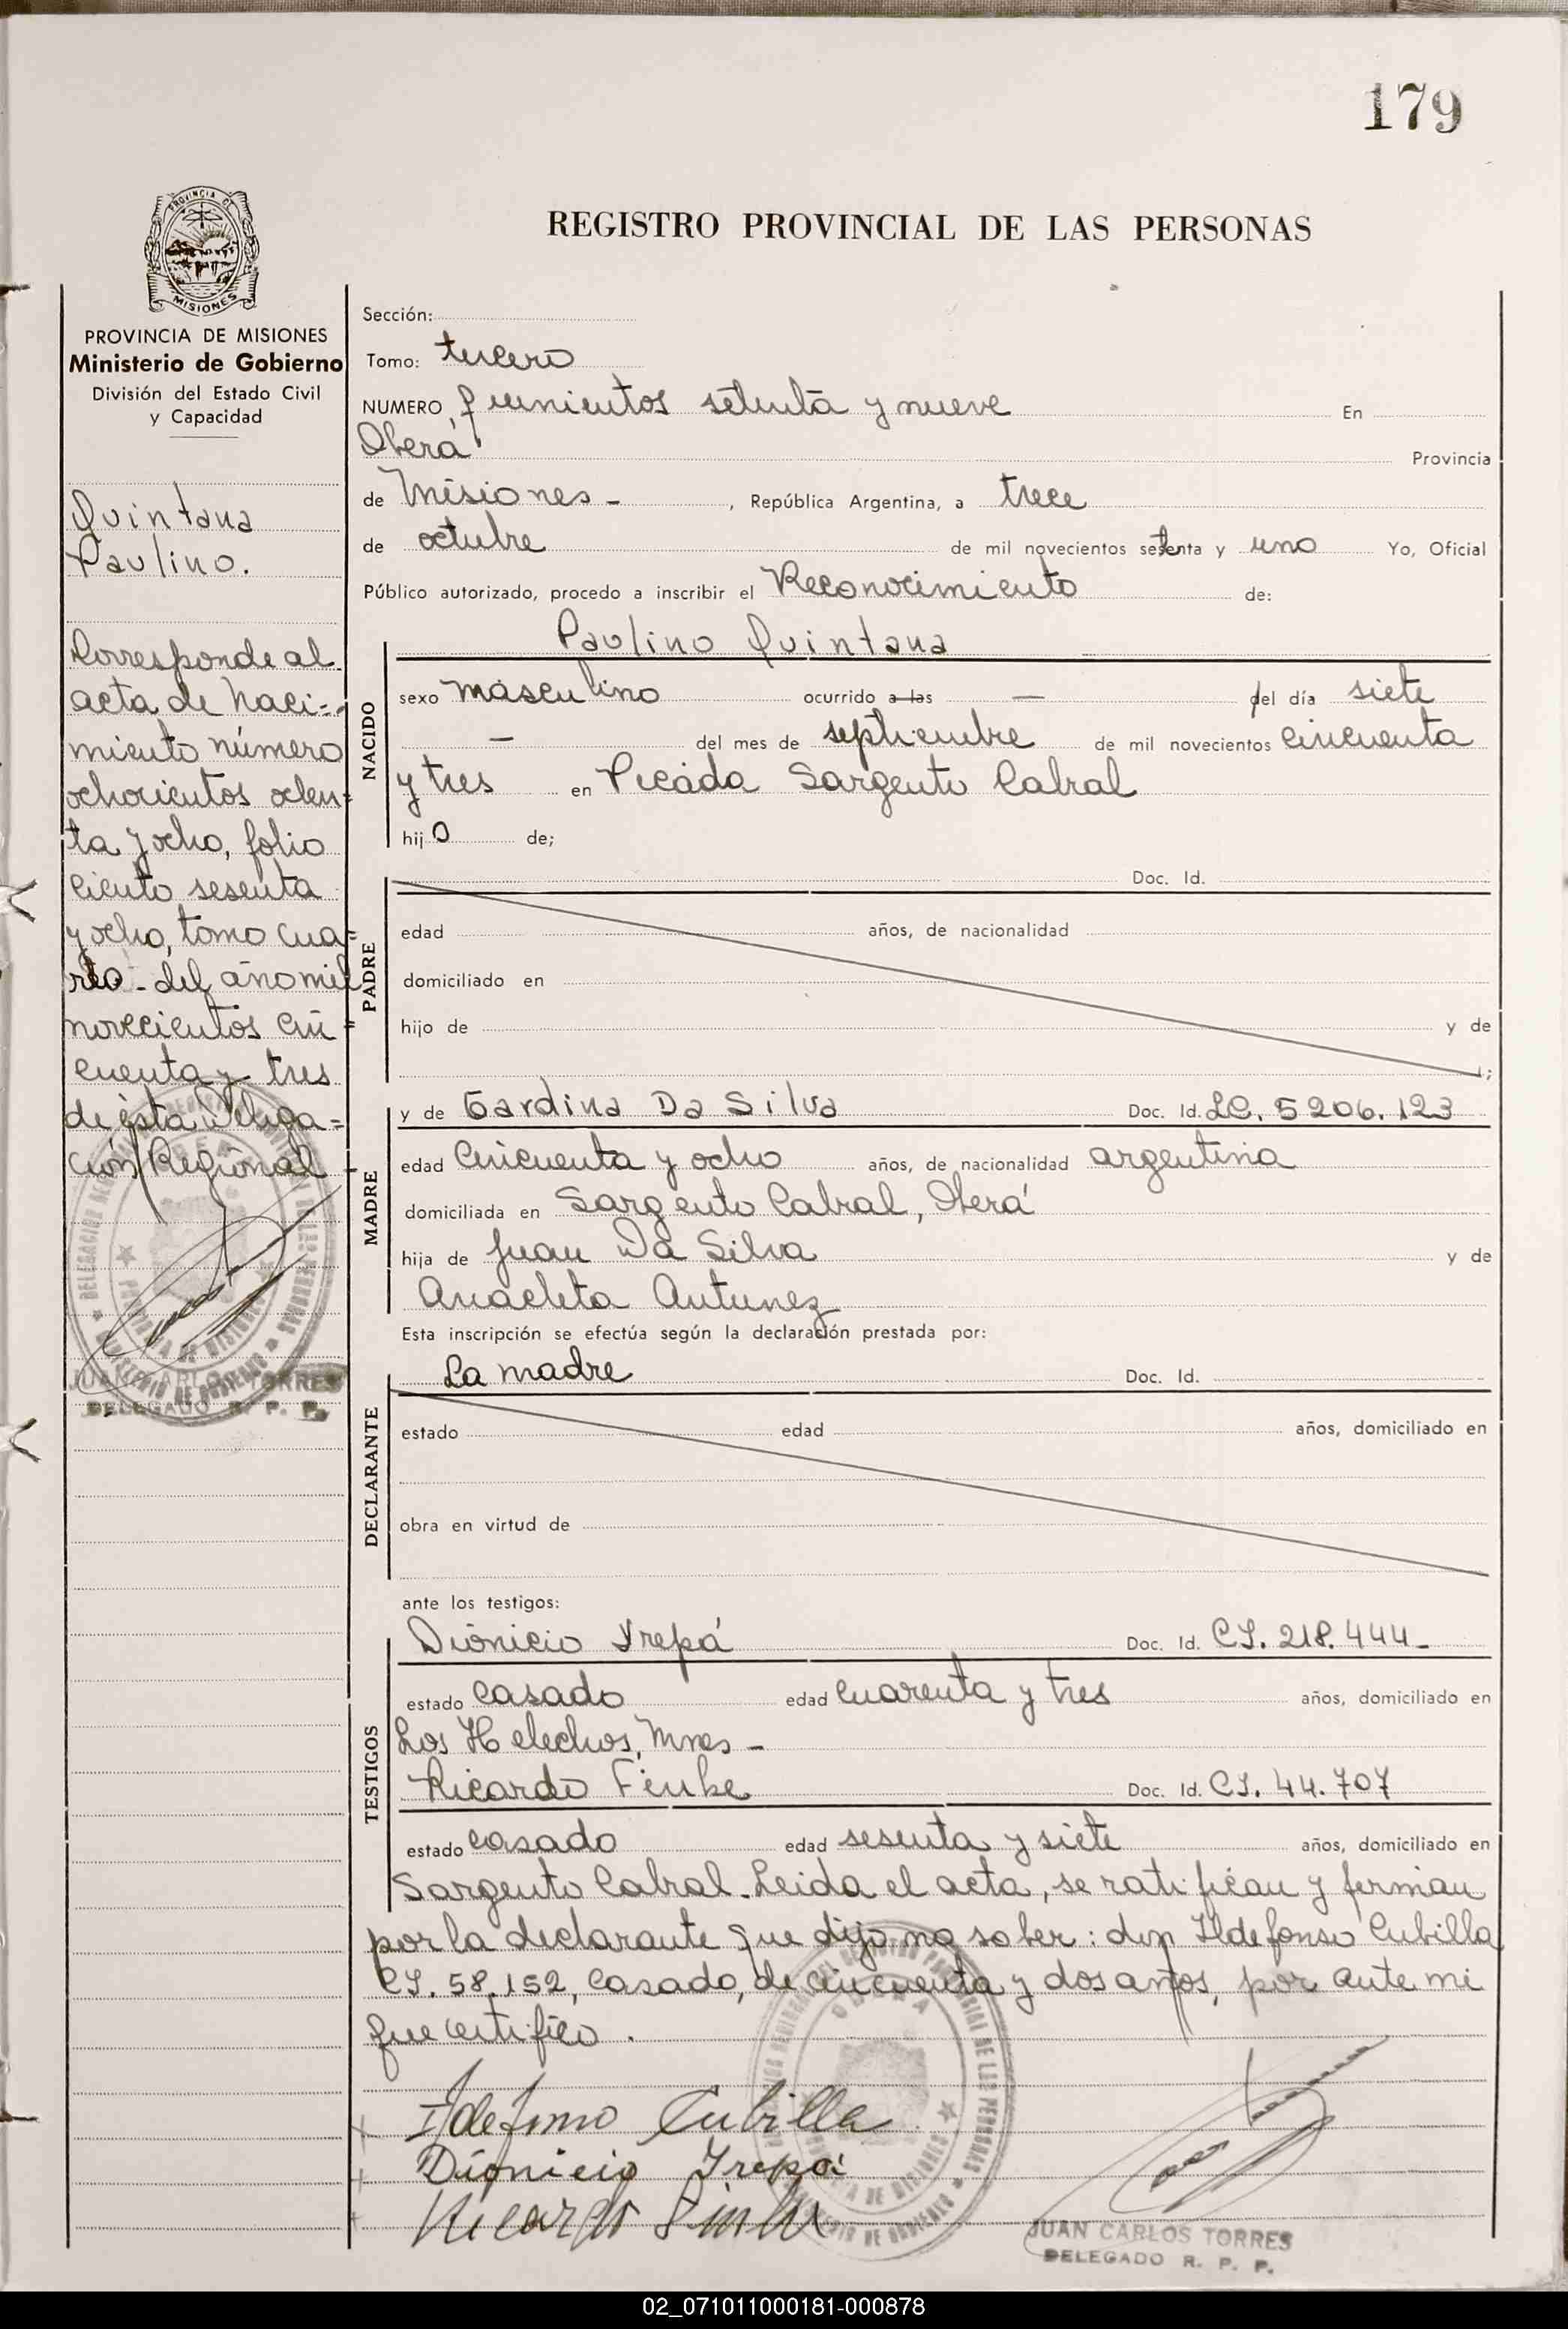 179
REGISTRO PROVINCIAL DE LAS PERSONAS
MISIONES
PROVINCIA DE MISIONES
Ministerio de Gobierno
División del Estado Civil
y Capacidad
Quintana
Paulino.
Corresponde al
acta de naci=
miento número
ochocientos ochen=
ta y ocho, folio
ciento sesenta
y ocho, tomo cua=
rto - del año mil
novecientos cin=
cuenta y tres
de ésta Delega=
ción Regional
JUAN CARLOS TORRES
DELEGADO R. P. P.
Sección:
Tomo: tercero
NUMERO quinientos setenta y nueve En
Oberá Provincia
de Misiones - , República Argentina, a trece
de octubre de mil novecientos setenta y uno Yo, Oficial
Público autorizado, procedo a inscribir el Reconocimiento de:
NACIDO
Paulino Quintana
sexo masculino ocurrido a las — del día siete
— del mes de septiembre de mil novecientos cincuenta
y tres en Picada Sargento Cabral
hijo de;
PADRE
Doc. Id.
edad años, de nacionalidad
domiciliado en
hijo de y de
;
MADRE
y de Gardina Da Silva Doc. Id. LC. 5206.123
edad cincuenta y ocho años, de nacionalidad argentina
domiciliada en Sargento Cabral, Oberá
hija de Juan Da Silva y de
Anacleta Antunez
Esta inscripción se efectúa según la declaración prestada por:
DECLARANTE
La madre Doc. Id.
estado edad años, domiciliado en
obra en virtud de
ante los testigos:
TESTIGOS
Dionicio Yrepá Doc. Id. CI. 218.444-
estado casado edad cuarenta y tres años, domiciliado en
Los Helechos, Mnes -
Ricardo Finke Doc. Id. CI. 44.707
estado casado edad sesenta y siete años, domiciliado en
Sargento Cabral. Leida el acta, se ratifican y firman
por la declarante que dijo no saber: don Ildefonso Cubilla
CI. 58.152, casado, de cincuenta y dos años, por ante mi
que certifico.
Ildefonso Cubilla
Dionicio Yrepá
Ricardo Finke
JUAN CARLOS TORRES
DELEGADO R. P. P.
02_071011000181-000878